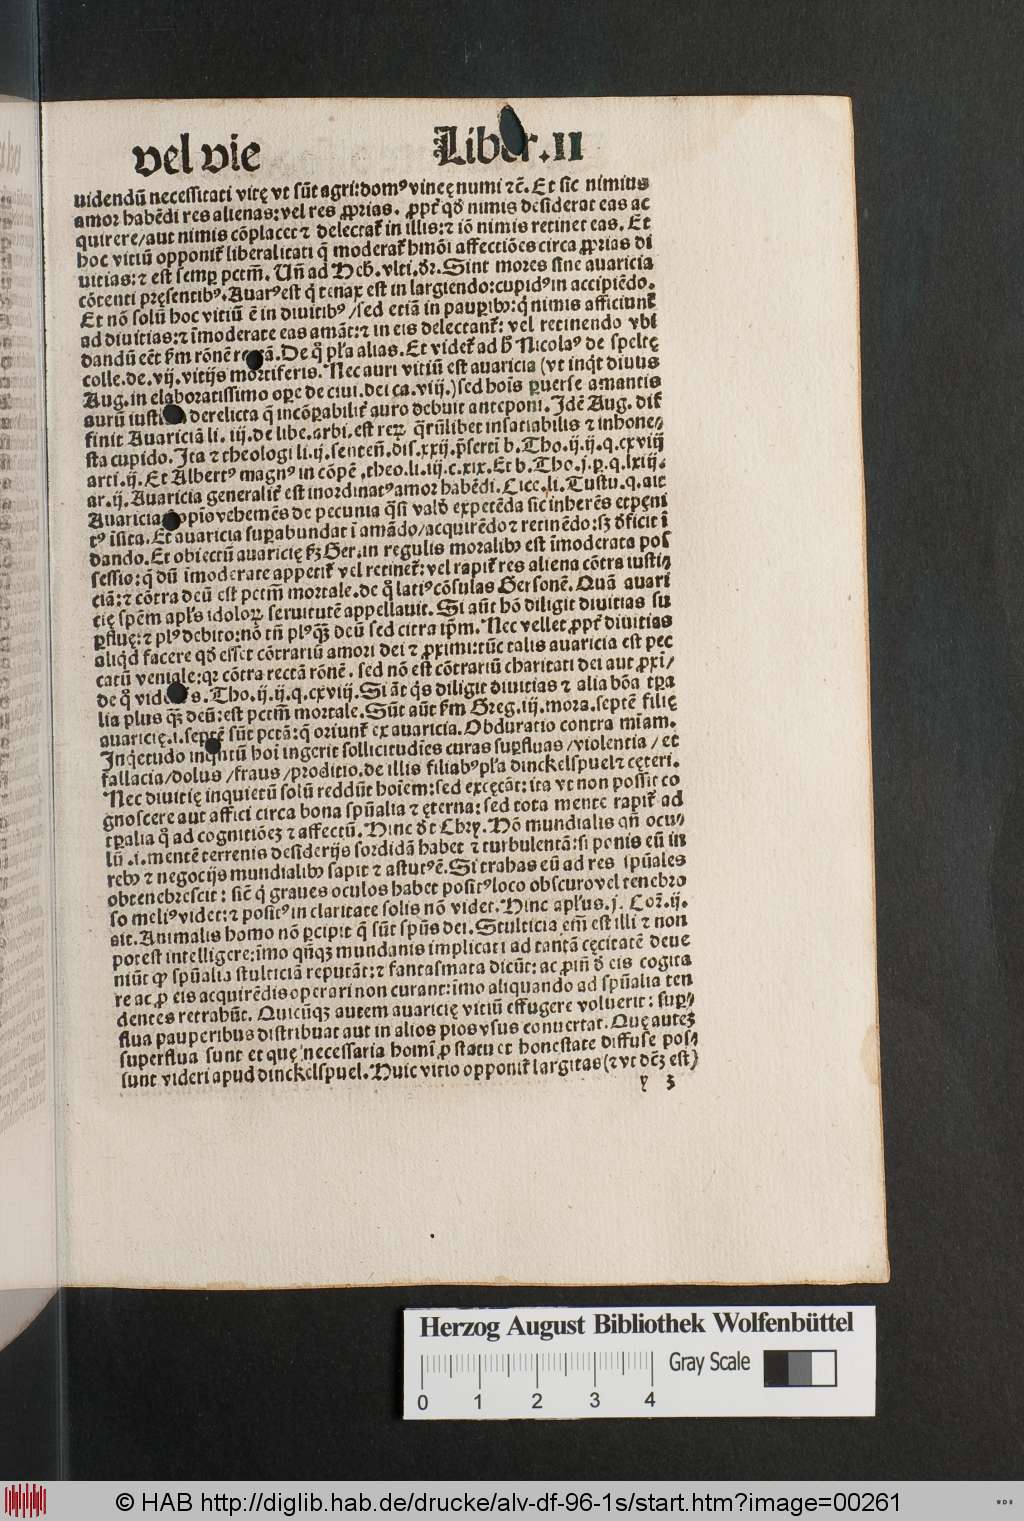 vel vie
Liber.II
uidendū necessitati vitę vt sūt agri:domꝰ vineę numi ⁊c̄. Et sic nimius
amor habēdi res alienas:vel res ꝓprias. ꝓpt̄ qd̄ nimis desiderat eas ac
quirere/aut nimis cōplacet ⁊ delectat̄ in illis:⁊ iō nimis retinet eas. Et
hoc vitiū opponit̄ liberalitati q̄ moderat̄ hmōi affectiōes circa ꝓprias di
uitias:⁊ est semꝑ pctm̄. Un̄ ad Heb̄. vlti. dr̄. Sint mores sine auaricia
cōtenti pręsentibꝰ. Auarꝰ est q̄ tenax est in largiendo:cupidꝰ in accipiēdo.
Et nō solū hoc vitiū ē in diuitibꝰ/sed etiā in pauꝑibꝰ:q̄ nimis afficiunt̄
ad diuitias:⁊ īmoderate eas amāt:⁊ in eis delectant̄: vel retinendo vbi
dandū eēt ẜm rōnē De q̄ pl̄a alias. Et videt̄ ad b̄ Nicolaꝰ de speltę
colle.de.vij.vitijs mortiferis. Nec auri vitiū est auaricia (vt inq̄t diuus
Aug.in elaboratissimo oꝑe de ciui.dei ca.viij.) sed hoīs ꝑuerse amantis
aurū iusti derelicta q̄ incōꝑabilit̄ auro debuit anteponi. Idē Aug. dif
finit Auariciā li. iij.de libe.arbi.est reꝝ q̄rūlibet insatiabilis ⁊ inhone⸗
sta cupido. Ita ⁊ theologi li.ij.senten̄.dis.xxij.p̄serti b. Tho.ij.ij.q.cxviij
arti.ij. Et Albertꝰ magnꝰ in cōpē.theo.li.iij.c.xix. Et b. Tho.j.p.q.lxiij.
ar.ij. Auaricia generalit̄ est inordinatꝰ amor habēdi. Cice.li. Tustu.q.ait
Auaricia opīo vehemēs de pecunia q̄si valď expetēda sic inherēs et pęni
tꝰ īsita. Et auaricia suꝑabundat ī amādo/acquirēdo ⁊ retinēdo:sꝫ ďficit ī
dando. Et obiectū auaricię ẜꝫ Ger.in regulis moralibꝰ est īmoderata pos
sessio:q̄ dū īmoderate appetit̄ vel retinet̄:vel rapit̄ res aliena cōtra iusti⸗
ciā:⁊ cōtra deū est pctm̄ mortale.de q̄ latiꝰ cōsulas Gersonē. Quā auari
cię spēm apl̄s idoloꝝ seruitutē appellauit. Si aūt hō diligit diuitias su
ꝑfluę:⁊ plꝰ debito:nō tn̄ plꝰ q̄ꝫ deū sed citra ip̄m. Nec vellet ꝓpt̄ diuitias
aliqd facere qd̄ esset cōtrariū amori dei ⁊ ꝓximi:tūc talis auaricia est pec
catū veniale:qꝛ cōtra rectā rōnē. sed nō est cōtrariū charitati dei aut ꝓxi/
de q̄ Tho.ij.ij.q.cxviij. Si āt q̄s diligit diuitias ⁊ alia bōa tꝑa
lia plus q̄ꝫ deū:est pctm̄ mortale. Sūt aūt ẜm Greg.iij.mora.septē filię
auaricię.i.septē sūt pctā:q̄ oriunt̄ ex auaricia. Obduratio contra mīam.
Inq̄etudo inq̄ntū hoī ingerit sollicitudīes curas suꝑfluas/violentia/et
fallacia/dolus/fraus/proditio.de illis filiabꝰ pl̄a dinckelspuel ⁊ cęteri.
Nec diuitię inquietū solū reddūt hoīem:sed excęcāt: ita vt non possit co
gnoscere aut affici circa bona spūalia ⁊ ęterna:sed tota mente rapit̄ ad
tꝑalia q̄ ad cognitiōeꝫ ⁊ affectū. Hinc ďt Chry. Hō mundialis qn̄ ocu⸗
lū .i.mentē terrenis desiderijs sordidā habet ⁊ turbulentā:si ponis eū in
rebꝰ ⁊ negocijs mundialibꝰ sapit ⁊ astutꝰ ē. Si trahas eū ad res spūales
obtenebrescit: siċ q̄ graues oculos habet positꝰ loco obscuro vel tenebro
so meliꝰ videt:⁊ positꝰ in claritate solis nō videt. Hinc apl̄us.j. Cor.ij.
ait. Animalis homo nō ꝑcipit q̄ sūt spūs dei. Stulticia em̄ est illi ⁊ non
potest intelligere:īmo qn̄qꝫ mundanis implicati ad tantā cęcitatē deue
niūt ꝙ spūalia stulticiā reputāt:⁊ fantasmata dicūt: ac ꝓin̄ ď eis cogita
re ac ꝓ eis acquirēdis operari non curant:imo aliquando ad spūalia ten
dentes retrahūt. Quicūqꝫ autem auaricię vitiū effugere voluerit: suꝑ⸗
flua pauperibus distribuat aut in alios pios vsus conuertat. Quę auteꝫ
superflua sunt et quę necessaria homī ꝓ statu et honestate diffuse pos⸗
sunt videri apud dinckelspuel. Huic vitio opponit̄ largitas (⁊ vt dēꝫ est)
y 3
Herzog August Bibliothek Wolfenbüttel
Gray Scale
0 1 2 3 4
© HAB http://diglib.hab.de/drucke/alv-df-96-1s/start.htm?image=00261